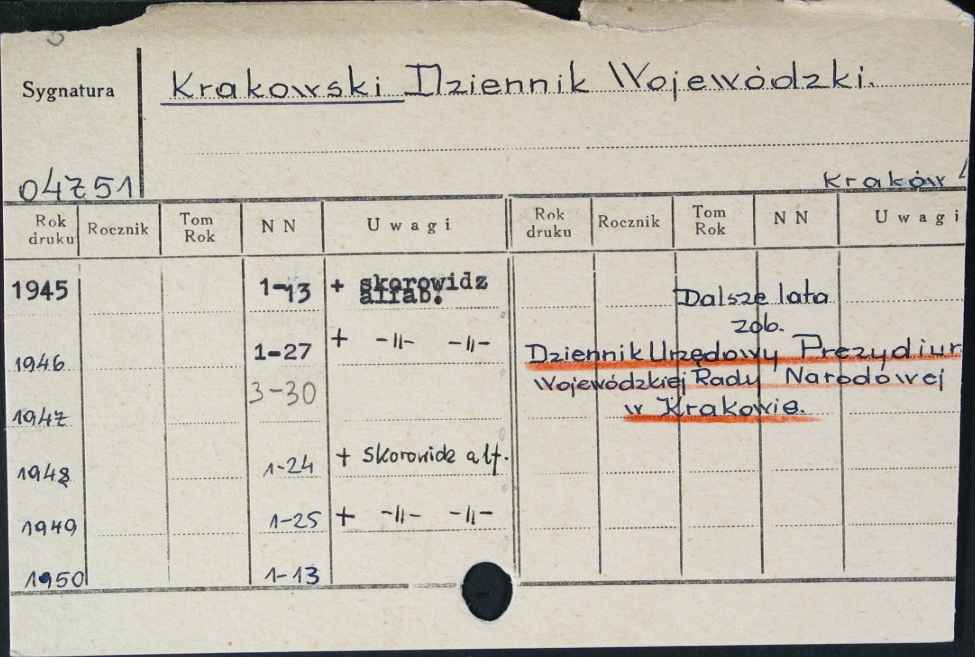 Sygnatura
Krakowski Dziennik Wojewódzki.
04751
Kraków
Rok druku Rocznik Tom Rok NN Uwagi Rok druku Rocznik Tom Rok NN Uwagi
1945 1-13 + skorowidz alfab.
Dalsze lata
zob.
1946 1-27 + -||- -||-
Dziennik Urzędowy Prezydium
Wojewódzkiej Rady Narodowej
w Krakowie.
1947 3-30
1948 1-24 + skorowidz alf.
1949 1-25 + -||- -||-
1950 1-13